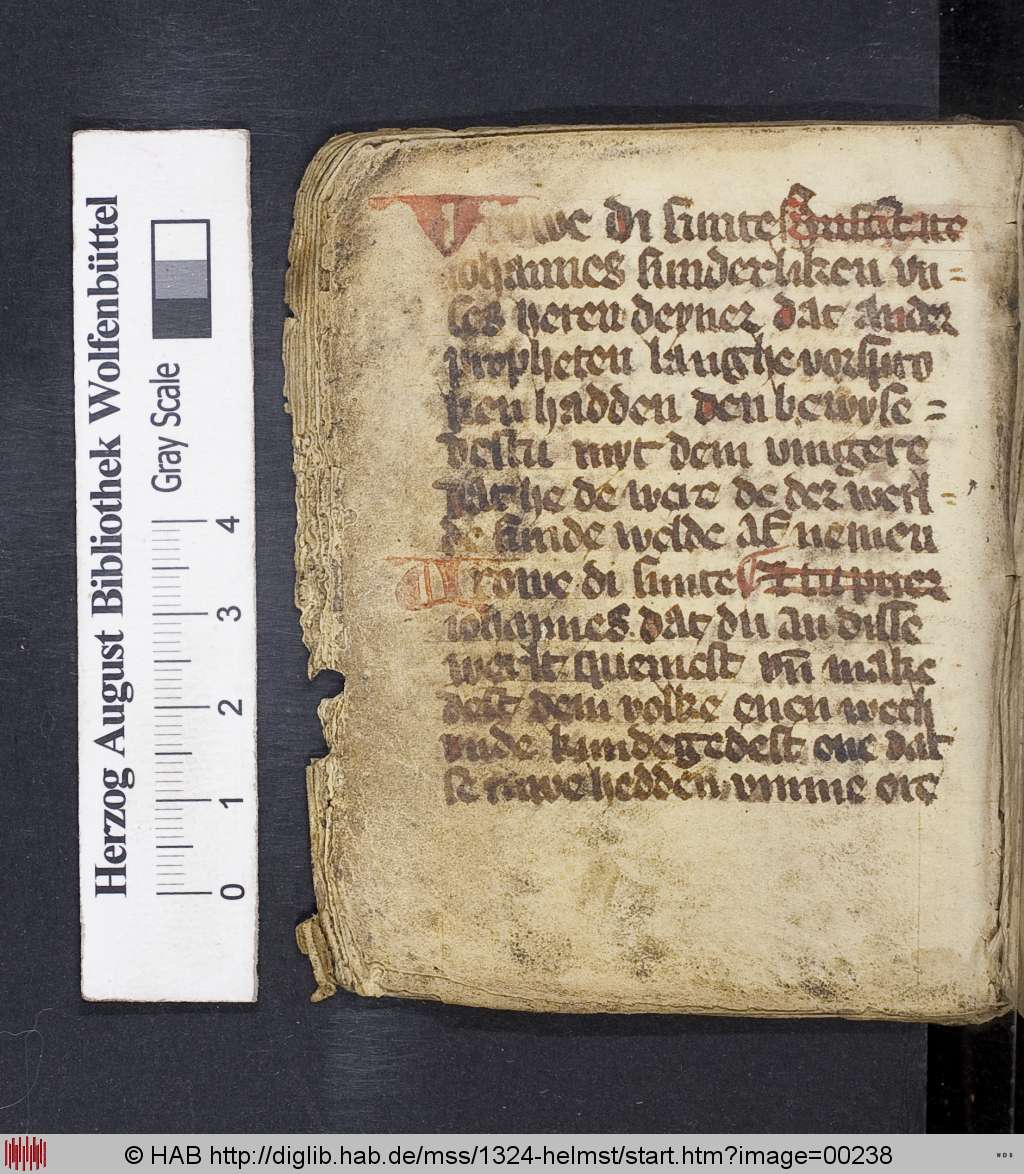 Vrowe di sunte
iohannes sunderliken vn=
ses heren deyner dat ander
propheten langhe vorspro
ken hadden den bewyse=
destu myt dem vingere
de were de der werl=
de sunde welde af nemen
Vrowe di sunte Et tu puer
iohannes dat du an disse
werlt quemest vn̄ make
dest dem volke enen wech
vnde kundegedest one dat
se ruwe hedden vmme ore
Herzog August Bibliothek Wolfenbüttel
Gray Scale
0 1 2 3 4
© HAB http://diglib.hab.de/mss/1324-helmst/start.htm?image=00238